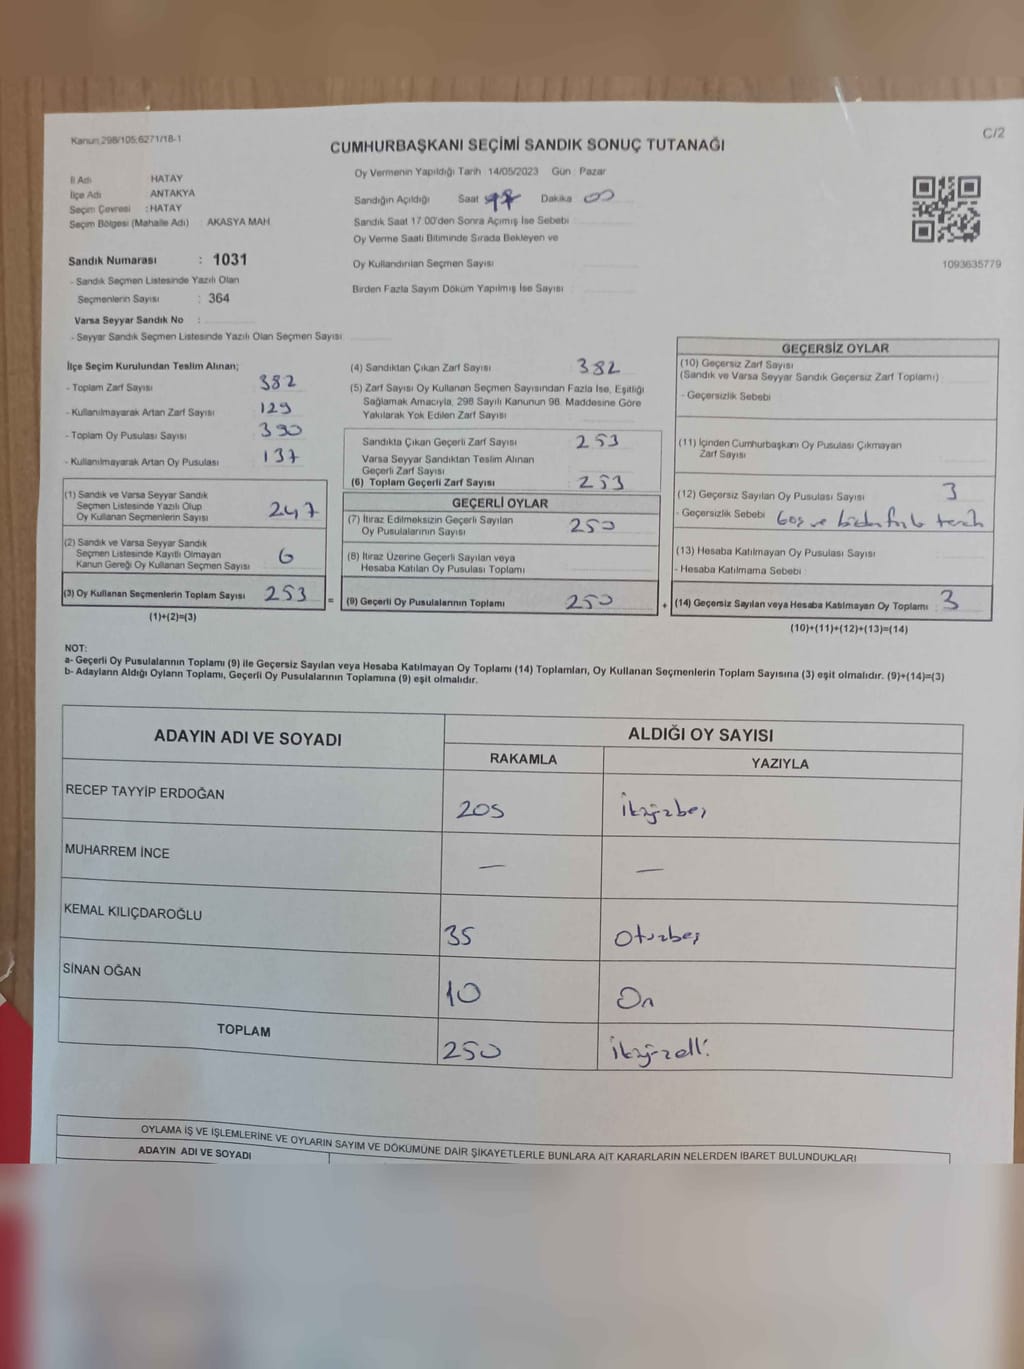 Kanun:298/105;6271/18-1
C/2
CUMHURBAŞKANI SEÇİMİ SANDIK SONUÇ TUTANAĞI
İl Adı HATAY
İlçe Adı ANTAKYA
Seçim Çevresi : HATAY
Seçim Bölgesi (Mahalle Adı) AKASYA MAH
Sandık Numarası : 1031
- Sandık Seçmen Listesinde Yazılı Olan
Seçmenlerin Sayısı : 364
Varsa Seyyar Sandık No :
- Seyyar Sandık Seçmen Listesinde Yazılı Olan Seçmen Sayısı
Oy Vermenin Yapıldığı Tarih 14/05/2023 Gün : Pazar
Sandığın Açıldığı Saat Dakika 00
Sandık Saat 17:00'den Sonra Açımış İse Sebebi
Oy Verme Saati Bitiminde Sırada Bekleyen ve
Oy Kullandırılan Seçmen Sayısı
Birden Fazla Sayım Döküm Yapılmış İse Sayısı :
1093635779
İlçe Seçim Kurulundan Teslim Alınan;
- Toplam Zarf Sayısı 382
- Kullanılmayarak Artan Zarf Sayısı 129
- Toplam Oy Pusulası Sayısı 390
- Kullanılmayarak Artan Oy Pusulası 137
(1) Sandık ve Varsa Seyyar Sandık
Seçmen Listesinde Yazılı Olup
Oy Kullanan Seçmenlerin Sayısı 247
(2) Sandık ve Varsa Seyyar Sandık
Seçmen Listesinde Kayıtlı Olmayan
Kanun Gereği Oy Kullanan Seçmen Sayısı 6
(3) Oy Kullanan Seçmenlerin Toplam Sayısı 253 =
(1)+(2)=(3)
(4) Sandıktan Çıkan Zarf Sayısı 382
(5) Zarf Sayısı Oy Kullanan Seçmen Sayısından Fazla İse, Eşitliği
Sağlamak Amacıyla, 298 Sayılı Kanunun 98. Maddesine Göre
Yakılarak Yok Edilen Zarf Sayısı
Sandıkta Çıkan Geçerli Zarf Sayısı 253
Varsa Seyyar Sandıktan Teslim Alınan
Geçerli Zarf Sayısı
(6) Toplam Geçerli Zarf Sayısı 253
GEÇERLİ OYLAR
(7) İtiraz Edilmeksizin Geçerli Sayılan
Oy Pusulalarının Sayısı 250
(8) İtiraz Üzerine Geçerli Sayılan veya
Hesaba Katılan Oy Pusulası Toplamı
(9) Geçerli Oy Pusulalarının Toplamı 250 +
GEÇERSİZ OYLAR
(10) Geçersiz Zarf Sayısı
(Sandık ve Varsa Seyyar Sandık Geçersiz Zarf Toplamı)
- Geçersizlik Sebebi
(11) İçinden Cumhurbaşkanı Oy Pusulası Çıkmayan
Zarf Sayısı
(12) Geçersiz Sayılan Oy Pusulası Sayısı 3
- Geçersizlik Sebebi boş ve birden fazla tercih
(13) Hesaba Katılmayan Oy Pusulası Sayısı
- Hesaba Katılmama Sebebi :
(14) Geçersiz Sayılan veya Hesaba Katılmayan Oy Toplamı 3
(10)+(11)+(12)+(13)=(14)
NOT:
a- Geçerli Oy Pusulalarının Toplamı (9) ile Geçersiz Sayılan veya Hesaba Katılmayan Oy Toplamı (14) Toplamları, Oy Kullanan Seçmenlerin Toplam Sayısına (3) eşit olmalıdır. (9)+(14)=(3)
b- Adayların Aldığı Oyların Toplamı, Geçerli Oy Pusulalarının Toplamına (9) eşit olmalıdır.
ADAYIN ADI VE SOYADI
ALDIĞI OY SAYISI
RAKAMLA YAZIYLA
RECEP TAYYİP ERDOĞAN 205 İkiyüzbeş
MUHARREM İNCE — —
KEMAL KILIÇDAROĞLU 35 Otuzbeş
SİNAN OĞAN 10 On
TOPLAM 250 İkiyüzelli
OYLAMA İŞ VE İŞLEMLERİNE VE OYLARIN SAYIM VE DÖKÜMÜNE DAİR ŞİKAYETLERLE BUNLARA AİT KARARLARIN NELERDEN İBARET BULUNDUKLARI
ADAYIN ADI VE SOYADI